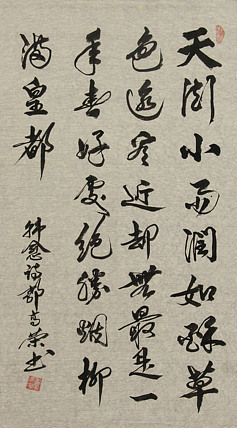 天街小雨润如酥草
色遥看近却无最是一
年春好处绝胜烟柳
满皇都
韩愈诗郭高荣书